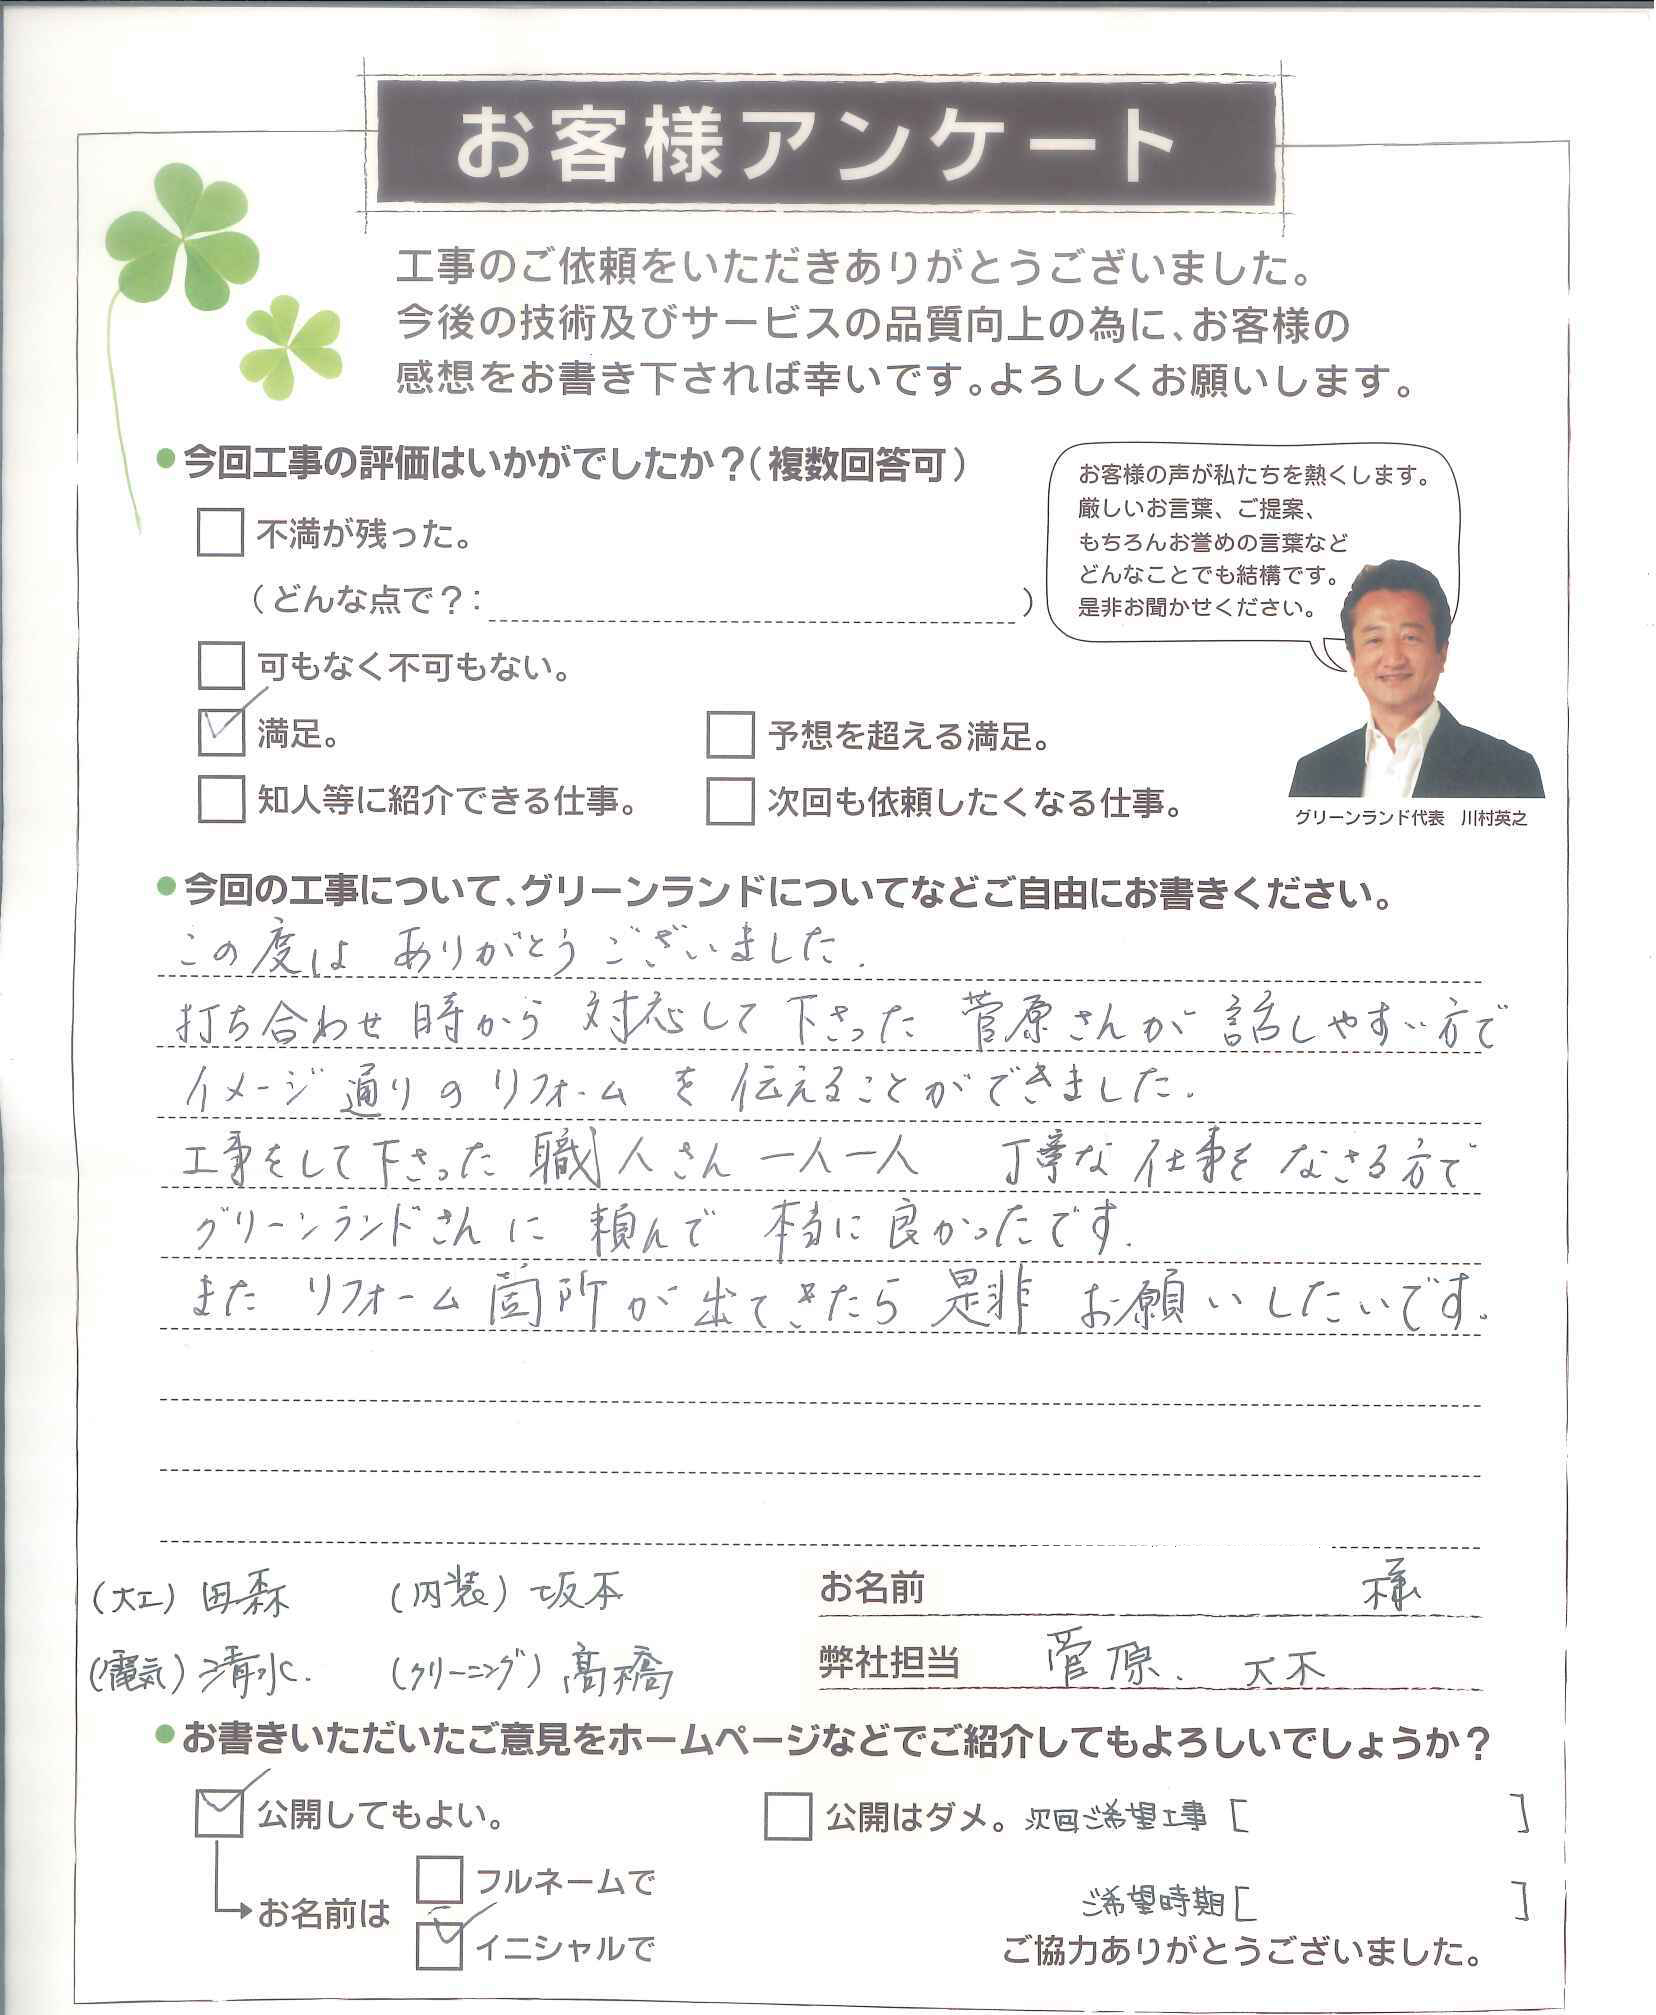 お客様アンケート
工事のご依頼をいただきありがとうございました。
今後の技術及びサービスの品質向上の為に、お客様の
感想をお書き下されば幸いです。よろしくお願いします。
●今回工事の評価はいかがでしたか？（複数回答可）
不満が残った。
（どんな点で？：　）
可もなく不可もない。
満足。
予想を超える満足。
知人等に紹介できる仕事。
次回も依頼したくなる仕事。
お客様の声が私たちを熱くします。
厳しいお言葉、ご提案、
もちろんお誉めの言葉など
どんなことでも結構です。
是非お聞かせください。
グリーンランド代表　川村英之
●今回の工事について、グリーンランドについてなどご自由にお書きください。
この度は ありがとうございました.
打ち合わせ時から 対応して下さった 菅原さんが 話しやすい方で
イメージ通りのリフォームを伝えることができました.
工事をして下さった職人さん一人一人 丁寧な仕事をなさる方で
グリーンランドさんに 頼んで 本当に良かったです.
また リフォーム箇所が出てきたら 是非 お願いしたいです。
(大工) 田森 (内装) 坂本
お名前 様
(電気) 清水. (クリーニング) 髙橋
弊社担当 菅原. 大不
●お書きいただいたご意見をホームページなどでご紹介してもよろしいでしょうか？
公開してもよい。
公開はダメ。次回ご希望工事 [ ]
お名前は
フルネームで
イニシャルで
ご希望時期 [ ]
ご協力ありがとうございました。